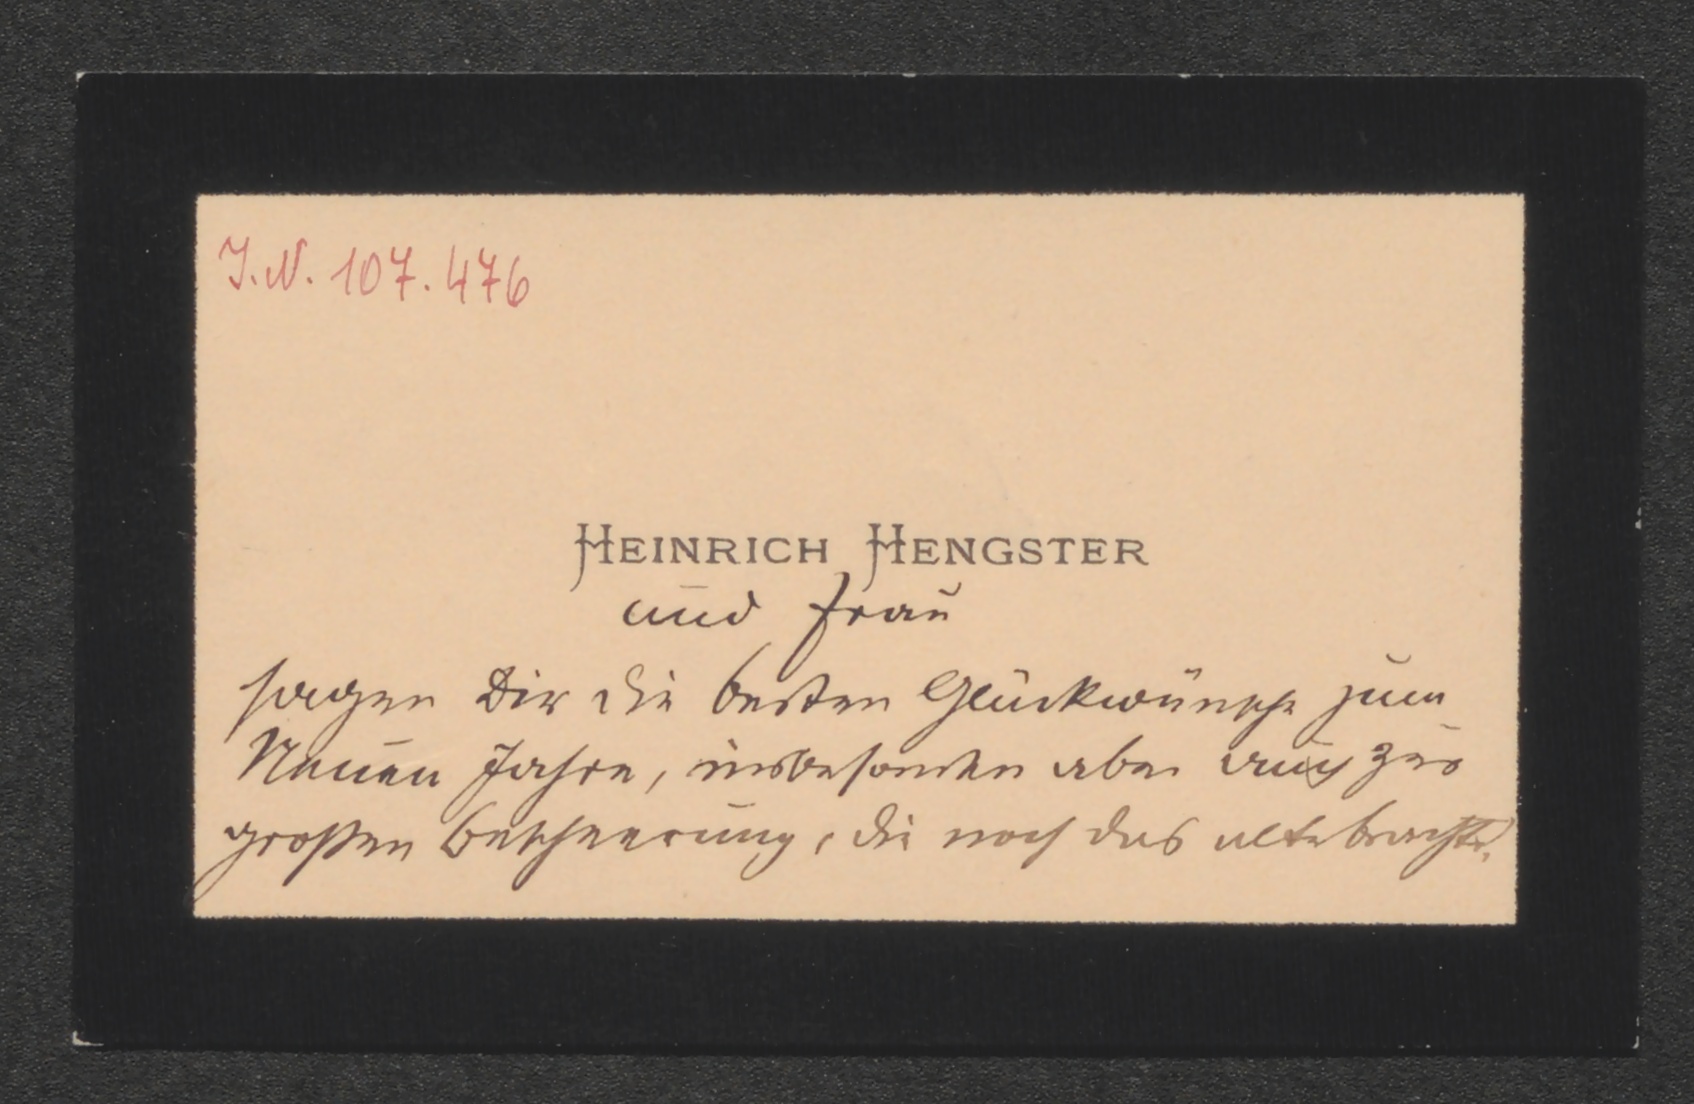 J.N. 107.476
HEINRICH HENGSTER
und Frau
sagen Dir die besten Glückwünsche zum
Neuen Jahre, insbesondere aber auch zur
großen Bescheerung, die noch das alte brachte.